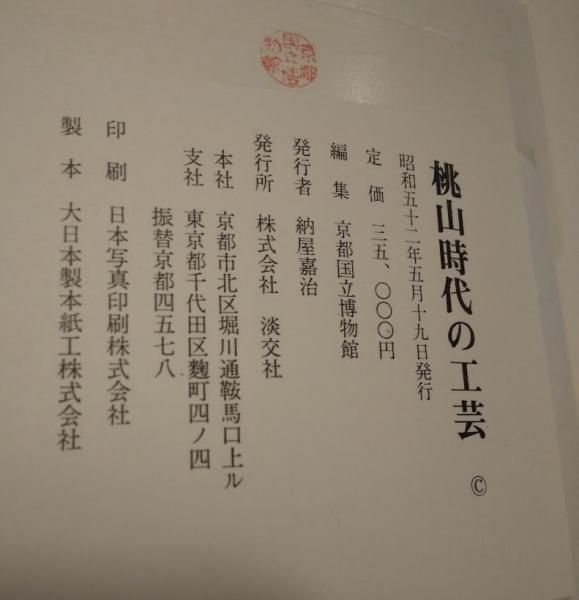 桃山時代の工芸 ©
昭和五十二年五月十九日発行
定価 三五、〇〇〇円
編集 京都国立博物館
発行者 納屋嘉治
発行所 株式会社 淡交社
本社 京都市北区堀川通鞍馬口上ル
支社 東京都千代田区麴町四ノ四
振替京都四五七八
印刷 日本写真印刷株式会社
製本 大日本製本紙工株式会社
京都国立博物館